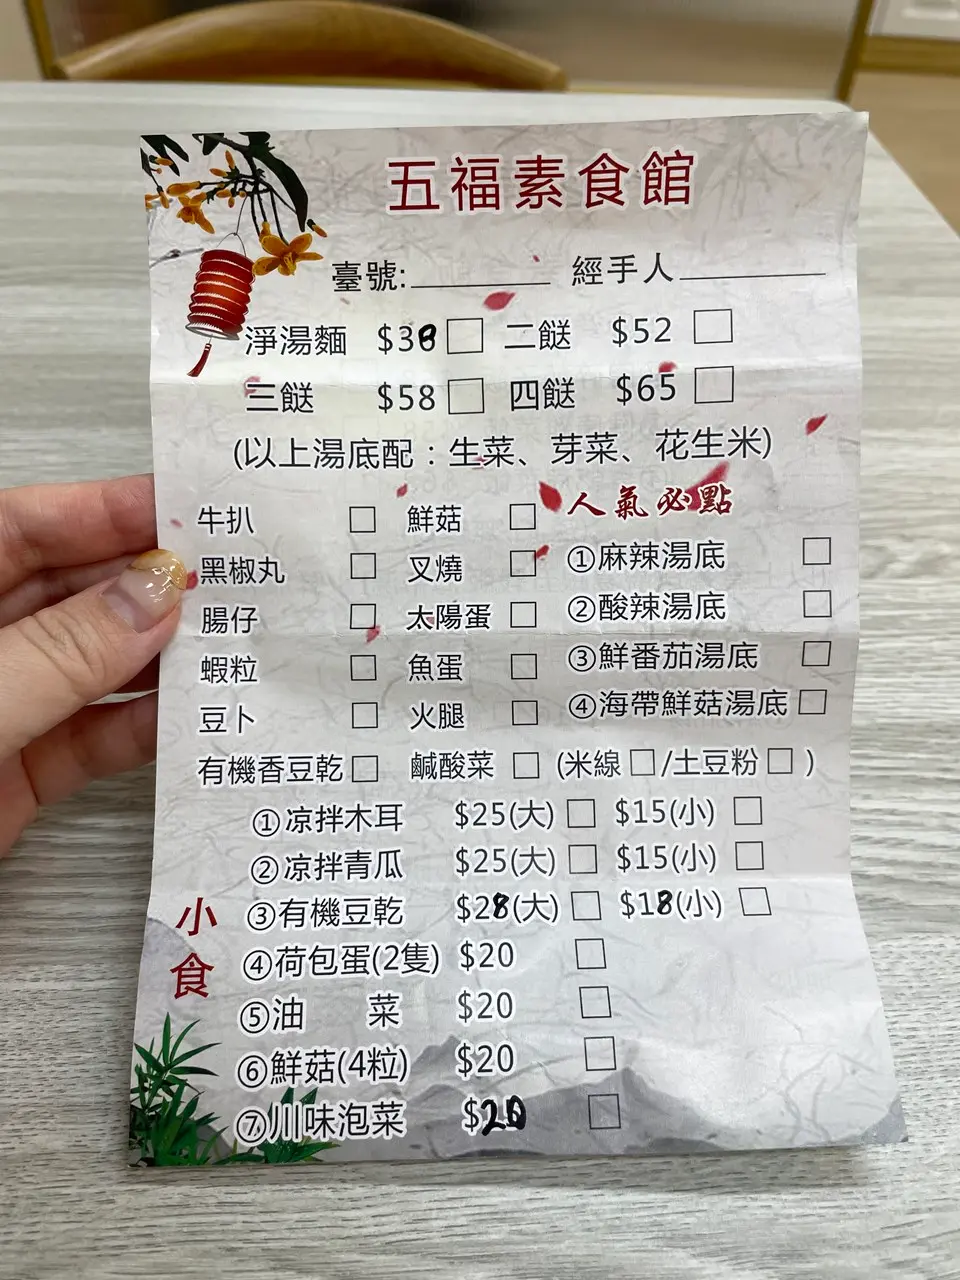 五福素食館
臺號:________ 經手人________
淨湯麵 $38 □ 二餸 $52 □
三餸 $58 □ 四餸 $65 □
(以上湯底配：生菜、芽菜、花生米)
人氣必點
牛扒 □ 鮮菇 □ ①麻辣湯底 □
黑椒丸 □ 叉燒 □ ②酸辣湯底 □
腸仔 □ 太陽蛋 □ ③鮮番茄湯底 □
蝦粒 □ 魚蛋 □ ④海帶鮮菇湯底 □
豆卜 □ 火腿 □
有機香豆乾 □ 鹹酸菜 □ (米線 □/土豆粉 □ )
小食
①凉拌木耳 $25(大) □ $15(小) □
②凉拌青瓜 $25(大) □ $15(小) □
③有機豆乾 $28(大) □ $18(小) □
④荷包蛋(2隻) $20 □
⑤油 菜 $20 □
⑥鮮菇(4粒) $20 □
⑦川味泡菜 $20 □